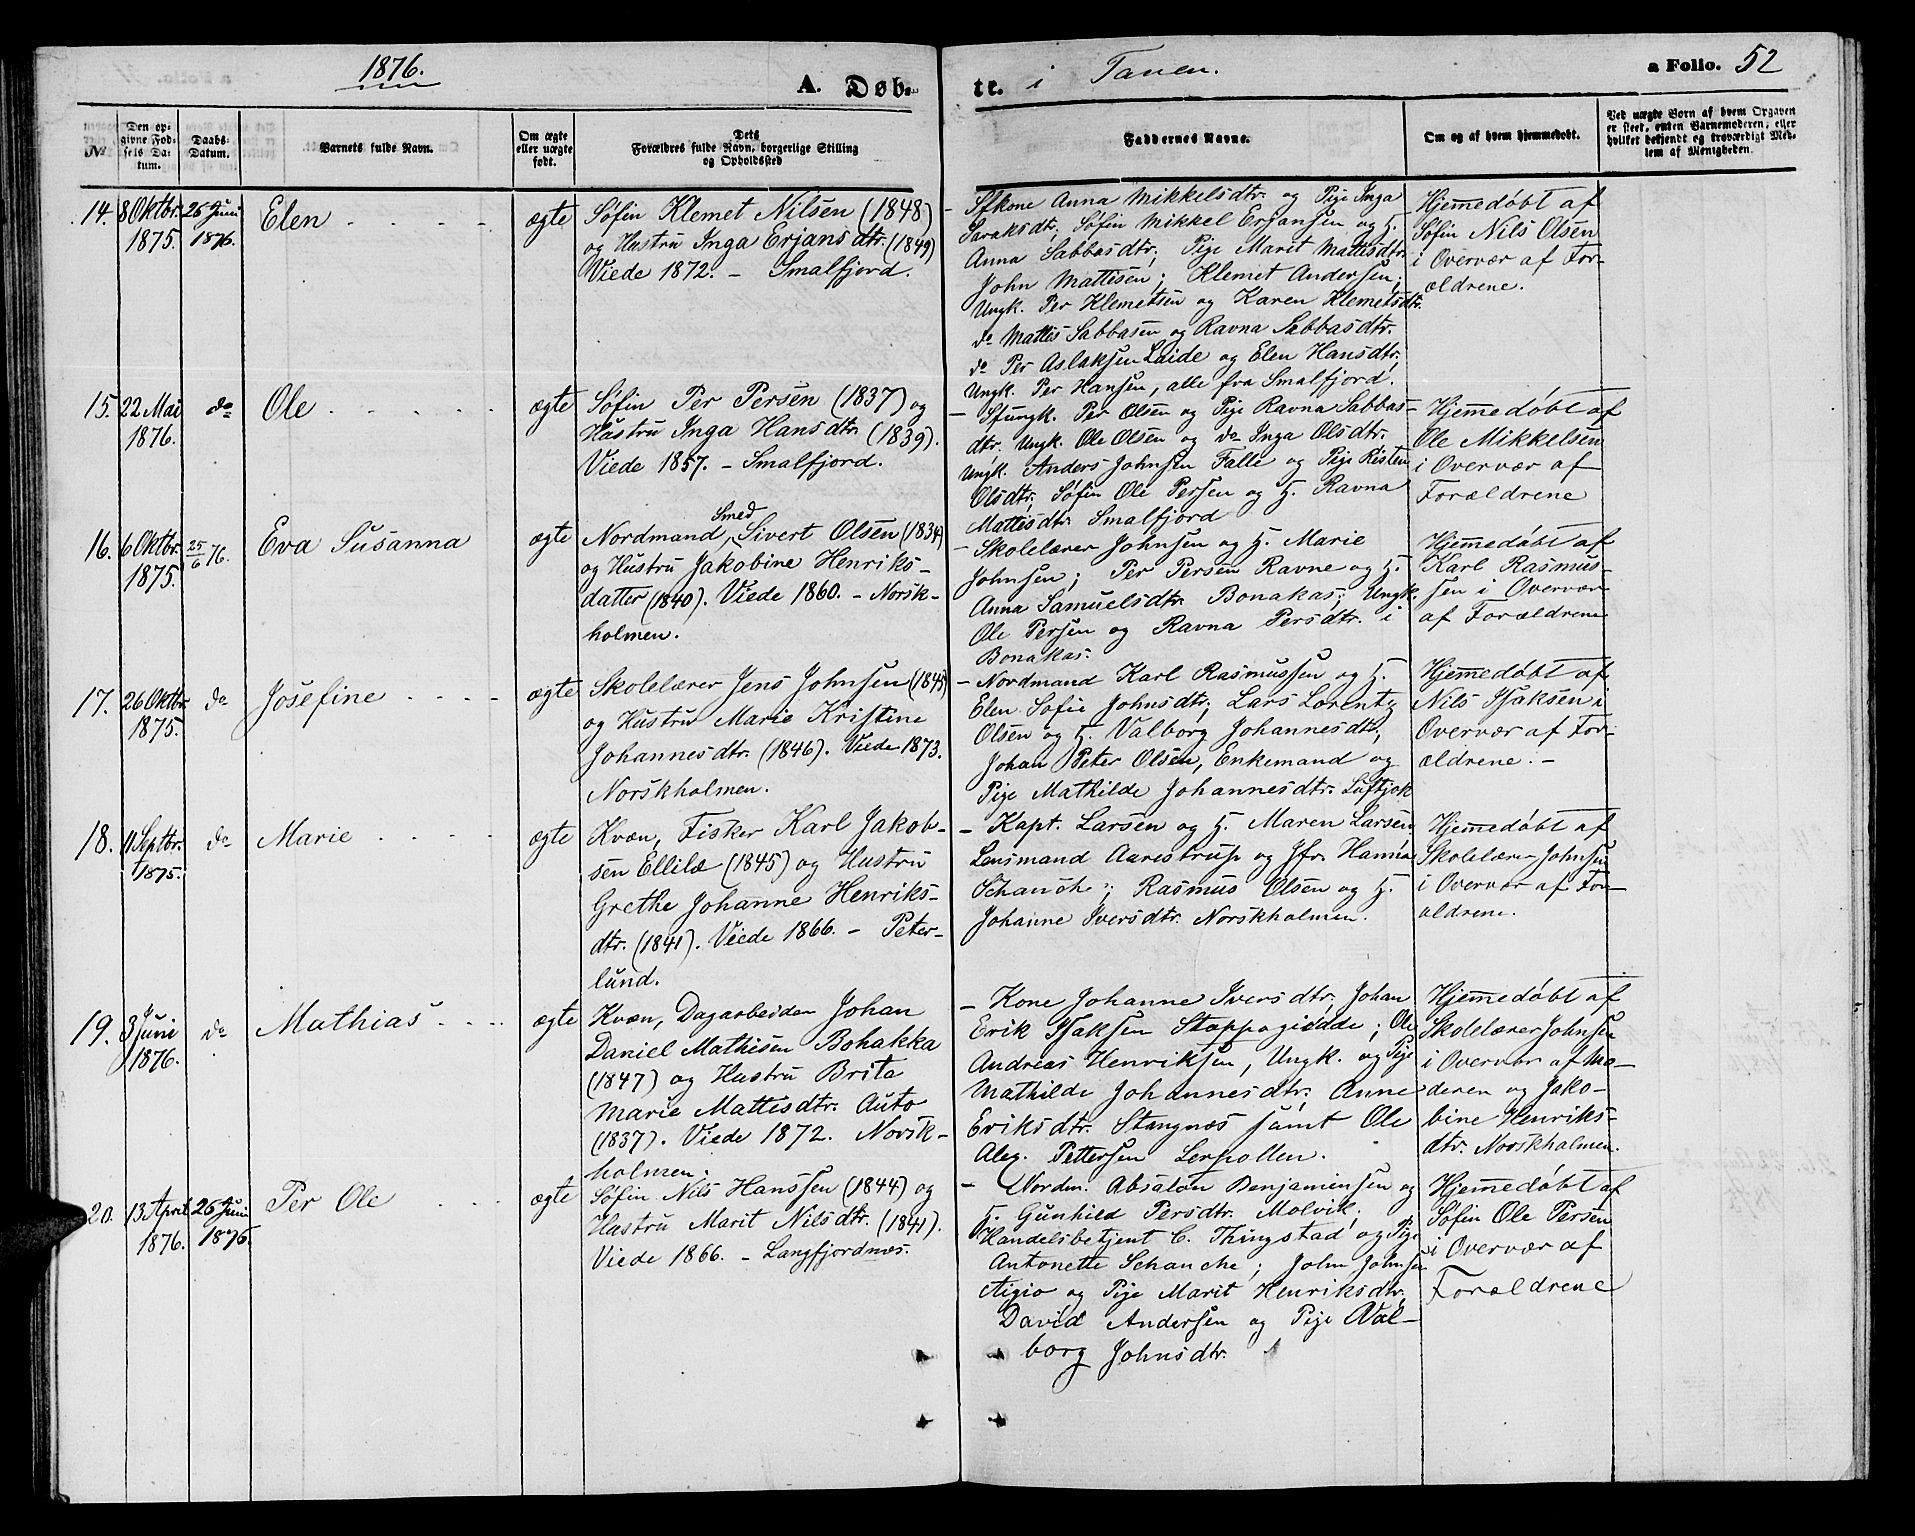 1876.
A. Døb-
te. i Tanen.
a Folio. 52
No.
Den op-
givne Fød-
sels Da-
tum.
Daabs-
Datum.
Barnets fulde Navn.
Om ægte
eller uægte
født.
Dets
Forældres fulde Navn, borgerlige Stilling
og Opholdssted
Faddernes Navne.
Om og af hvem hjemmedøbt.
Ved uægte Børn af hvem Opgaven
er skeet, enten Barnemoderen, eller
hvilket bekjendt og troværdigt Med-
lem af Menigheden.
14. 8 Oktbr.
1875.
25 Juni
1876.
Elen
ægte
Søfin Klemet Nilsen (1848)
og Hustru Inga Erjansdtr. (1849)
Viede 1872. - Smalfjord.
- Sfkone Anna Mikkelsdtr. og Pige Inga
Saraksdtr. Søfin Mikkel Erjansen og H.
Anna Sabbasdtr. Pige Marit Mattisdtr.
John Mattisen; Klemet Andersen;
Ungk. Per Klemetsen og Karen Klemetsdtr.
do Mattis Sabbasen og Ravna Sabbasdtr.
do Per Aslaksen Laide og Elen Hansdtr,
Ungk. Per Hansen, alle fra Smalfjord.
Hjemmedøbt af
Søfin Nils Olsen
i Overvær af For-
ældrene.
15. 22 Mai
1876.
do
Ole
ægte
Søfin Per Persen (1837) og
Hustru Inga Hansdtr. (1839).
Viede 1857. - Smalfjord.
- Sfungk. Per Olsen og Pige Ravna Sabbas-
dtr. Ungk. Ole Olsen og do Inga Olsdtr.
Ungk. Anders Johnsen Falle og Pige Risten
Olsdtr; Søfin Ole Persen og H. Ravna
Mattisdtr. Smalfjord
Hjemmedøbt af
Ole Mikkelsen
i Overvær af
Forældrene
16. 6 Oktbr.
1875.
25/6 76.
Eva Susanna
ægte
Smed
Nordmand, Sivert Olsen (1834)
og Hustru Jakobine Henriks-
datter (1840). Viede 1860. - Norsk-
holmen.
- Skolelærer Johnsen og H. Marie
Johnsen; Per Persen Ravne og H.
Anna Samuelsdtr. Bonakas; Ungk.
Ole Persen og Ravna Persdtr. i
Bonakas.
Hjemmedøbt af
Karl Rasmus-
sen i Overvær
af Forældrene
17. 26 Oktbr.
1875.
do
Josefine
ægte
Skolelærer Jens Johnsen (1845)
og Hustru Marie Kristine
Johannesdtr. (1846). Viede 1873.
Norskholmen.
- Nordmand Karl Rasmussen og H.
Elen Sofie Johnsdtr; Lars Lorentz
Olsen og H. Valborg Johannesdtr,
Johan Peter Olsen, Enkemand og
Pige Mathilde Johannesdtr. Luftjok
Hjemmedøbt af
Nils Isaksen i
Overvær af For-
ældrene. -
18. 11 Septbr.
1875.
do
Marie
ægte
Kvæn, Fisker Karl Jakob-
sen Ellilæ (1845) og Hustru
Grethe Johanne Henriks-
dtr. (1841). Viede 1866. - Peter-
lund.
- Kapt. Larsen og H. Maren Larsen
Lensmand Aarestrup og Jfr. Hanna
Schanche; Rasmus Olsen og H.
Johanne Iversdtr. Norskholmen.
Hjemmedøbt af
Skolelærer Johnsen
i Overvær af For-
ældrene.
19. 3 Juni
1876.
do
Mathias
ægte
Kvæn, Dagarbeider Johan
Daniel Mathisen Bohakka
(1847) og Hustru Brita
Marie Mattisdtr. Auto
(1837). Viede 1872. Norsk-
holmen.
- Kone Johanne Iversdtr, Johan
Erik Isaksen Stoppogiedde; Ole
Andreas Henriksen, Ungk. og Pige
Mathilde Johannesdtr, Anne
Eriksdtr. Stangnes samt Ole
Alex. Pettersen Lerpollen.
Hjemmedøbt af
Skolelærer Johnsen
i Overvær af Mo-
deren og Jako-
bine Henriks-
dtr. Norskholmen.
20. 13 April
1876.
25 Juni
1876.
Per Ole
ægte
Søfin Nils Hanssen (1844) og
Hustru Marit Nilsdtr. (1841).
Viede 1866. - Langfjordnæs.
- Nordm. Absalon Benjaminsen og
H. Gunhild Persdtr. Molvik;
Handelsbetjent C. Thingstad og Pige
Antonette Schanche; John Johnsen
Aigio og Pige Marit Henriksdtr,
David Andersen og Pige Val-
borg Johnsdtr.
Hjemmedøbt af
Søfin Ole Persen
i Overvær af
Forældrene